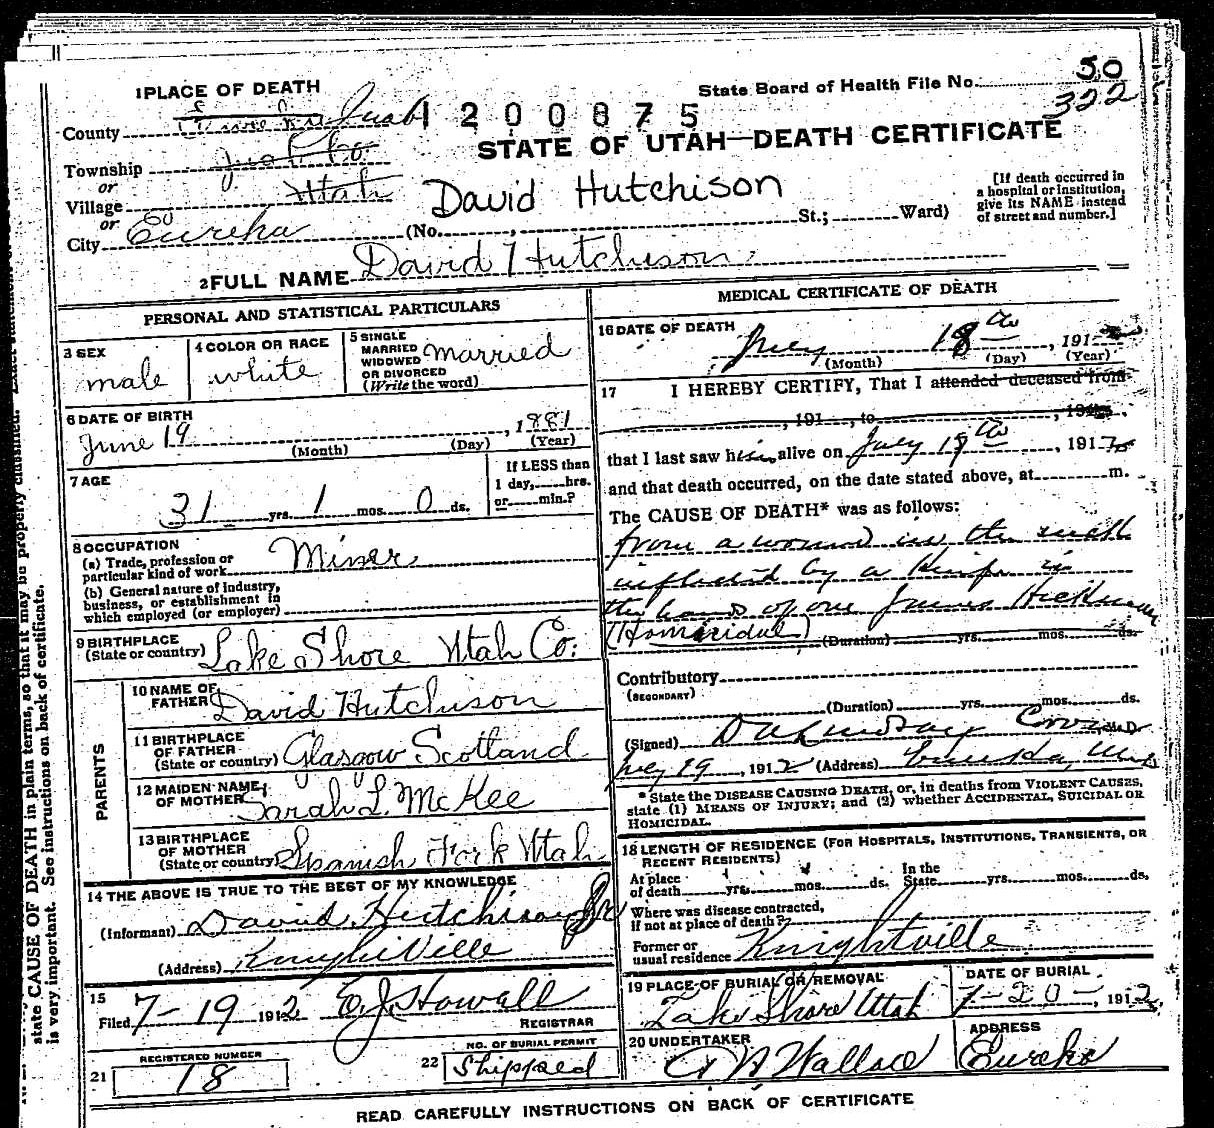 1 PLACE OF DEATH
State Board of Health File No. 50
322
County Juab 1200875
STATE OF UTAH—DEATH CERTIFICATE
Township Juab Co
or
Village Utah
David Hutchison
[If death occurred in a hospital or institution, give its NAME instead of street and number.]
or
City Eureka (No. , St.; Ward)
2 FULL NAME David Hutchison
PERSONAL AND STATISTICAL PARTICULARS
3 SEX
male
4 COLOR OR RACE
white
5 SINGLE
MARRIED
WIDOWED
OR DIVORCED
(Write the word)
married
6 DATE OF BIRTH
June 19, 1881
(Month) (Day) (Year)
7 AGE
31 yrs. 1 mos. 0 ds.
If LESS than
1 day, hrs.
or min.?
8 OCCUPATION
(a) Trade, profession or
particular kind of work Miner
(b) General nature of industry,
business, or establishment in
which employed (or employer)
9 BIRTHPLACE
(State or country) Lake Shore Utah Co.
PARENTS
10 NAME OF
FATHER David Hutchison
11 BIRTHPLACE
OF FATHER
(State or country) Glasgow Scotland
12 MAIDEN NAME
OF MOTHER Sarah L. McKee
13 BIRTHPLACE
OF MOTHER
(State or country) Spanish Fork Utah
14 THE ABOVE IS TRUE TO THE BEST OF MY KNOWLEDGE
(Informant) David Hutchison Sr
(Address) Knightville
15
Filed 7-19 1912 E.J. Howell
REGISTRAR
REGISTERED NUMBER
21 18
NO. OF BURIAL PERMIT
22 Shipped
MEDICAL CERTIFICATE OF DEATH
16 DATE OF DEATH
July 18th, 1912
(Month) (Day) (Year)
17 I HEREBY CERTIFY, That I attended deceased from
, 191 , to , 191
that I last saw him alive on July 19th, 1912
and that death occurred, on the date stated above, at m.
The CAUSE OF DEATH* was as follows:
from a wound in the
inflicted by a Knife in
the hands of one James Hickman
(Homicidal) (Duration) yrs. mos. ds.
Contributory
(SECONDARY)
(Duration) yrs. mos. ds.
(Signed) M.D.
July 19, 1912 (Address) Eureka, Utah
* State the DISEASE CAUSING DEATH, or, in deaths from VIOLENT CAUSES,
state (1) MEANS OF INJURY; and (2) whether ACCIDENTAL, SUICIDAL OR
HOMICIDAL.
18 LENGTH OF RESIDENCE (FOR HOSPITALS, INSTITUTIONS, TRANSIENTS, OR
RECENT RESIDENTS)
At place
of death yrs. mos. ds.
In the
State yrs. mos. ds.
Where was disease contracted,
if not at place of death?
Former or
usual residence Knightville
19 PLACE OF BURIAL OR REMOVAL
Lake Shore Utah
DATE OF BURIAL
7-20-, 1912
20 UNDERTAKER
Wallace
ADDRESS
Eureka
READ CAREFULLY INSTRUCTIONS ON BACK OF CERTIFICATE
state CAUSE OF DEATH in plain terms, so that it may be properly classified.
is very important. See instructions on back of certificate.